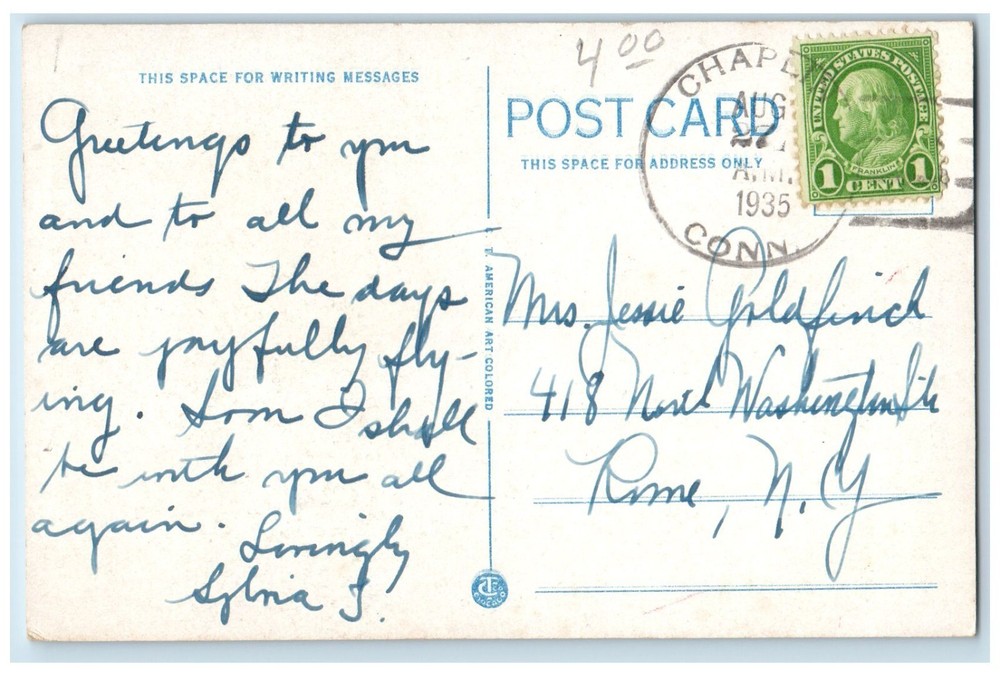 4 00
THIS SPACE FOR WRITING MESSAGES
Greetings to you
and to all my
friends The days
are joyfully fly-
ing. Soon I shall
be with you all
again.
Lovingly
Sylvia J.
C. T. AMERICAN ART COLORED
POST CARD
THIS SPACE FOR ADDRESS ONLY
AUG
A.M.
1935
CONN.
UNITED STATES POSTAGE
FRANKLIN
1 CENT 1
Mrs. Jessie Goldfinch
418 North Washington St.
Rome, N.Y